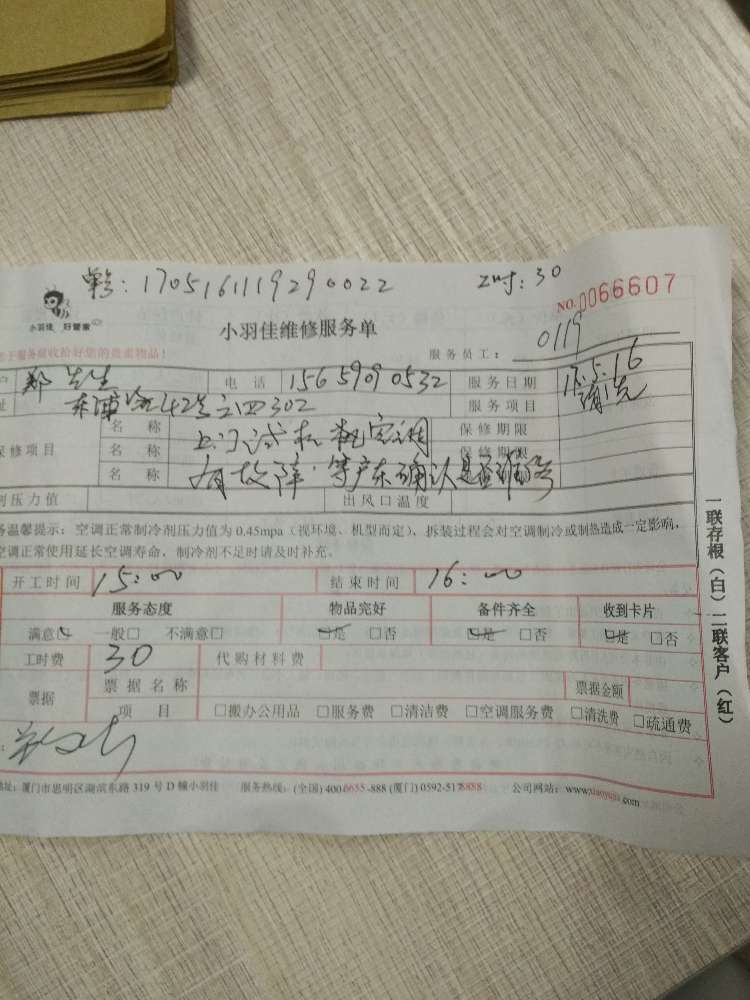 单号：1705161119290022 工时：30
小羽佳 好管家 小羽佳维修服务单 NO.0066607
服务员工： 0119
贵重物品！
郑先生 电话 15659090532 服务日期 17.5.16
42号之四302 服务项目 清洗
名称 上门试机 保修期限
修项目 名称 保修期限
名称 有故障，等户东确认是否维修
压力值 出风口温度
温馨提示：空调正常制冷剂压力值为0.45mpa（视环境、机型而定），拆装过程会对空调制冷或制热造成一定影响，
空调正常使用延长空调寿命，制冷剂不足时请及时补充。
开工时间 15:00 结束时间 16:00
服务态度 物品完好 备件齐全 收到卡片
满意☑ 一般□ 不满意□ ☑是 □否 ☑是 □否 ☑是 □否
工时费 30 代购材料费
票据 票据名称 票据金额
项目 □搬办公用品 □服务费 □清洁费 □空调服务费 □清洗费 □疏通费
地址：厦门市思明区湖滨东路319号D幢小羽佳 服务热线：(全国) 400-6655-888 (厦门) 0592-5178888 公司网站：www.xiaoyujia.com
一联存根（白）二联客户（红）